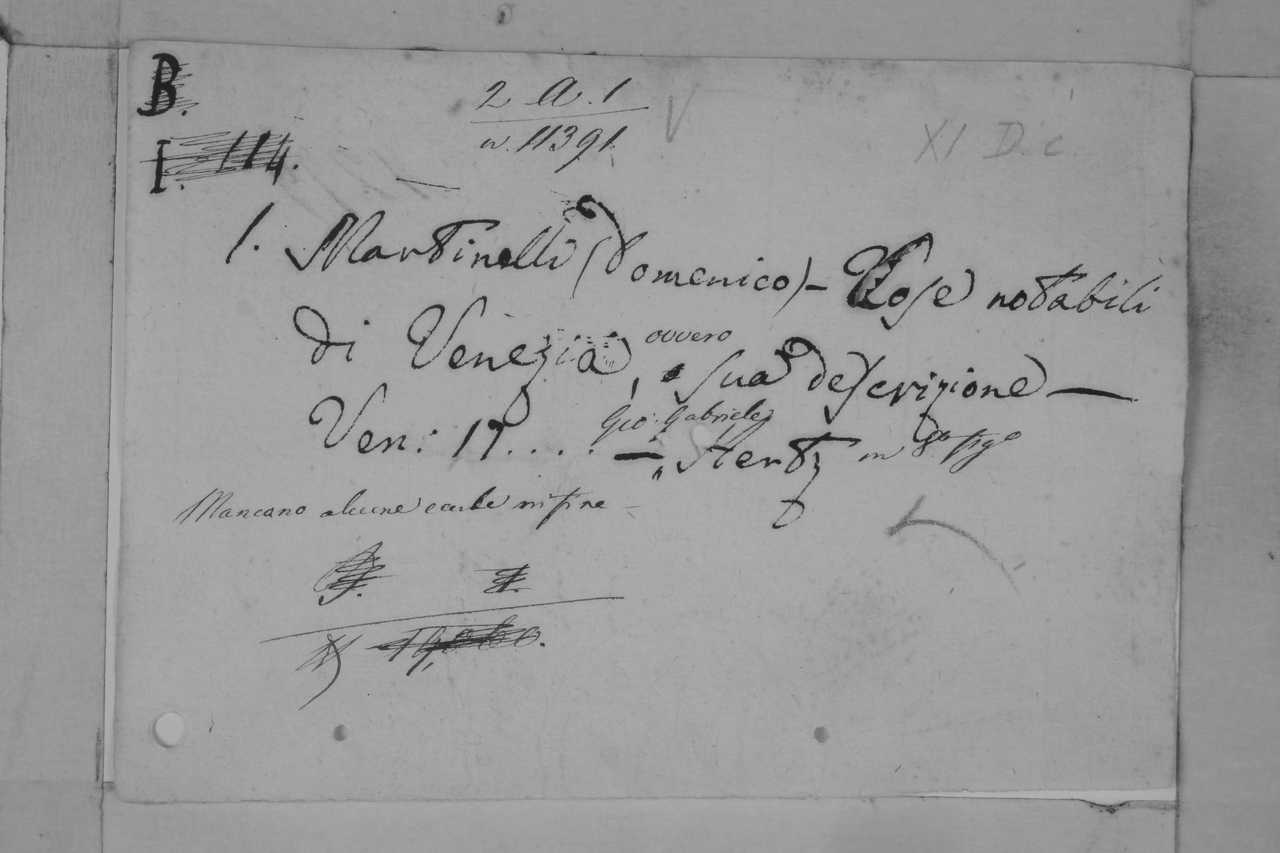 B.
I. 114.
2 A. 1
n. 11391.
V
XI D. c.
1. Martinelli (Domenico) – Cose notabili
di Venezia, ovvero sua descrizione —
Ven: 17.... — Gio: Gabriele Hertz in 8° fig°
Mancano alcune carte in fine